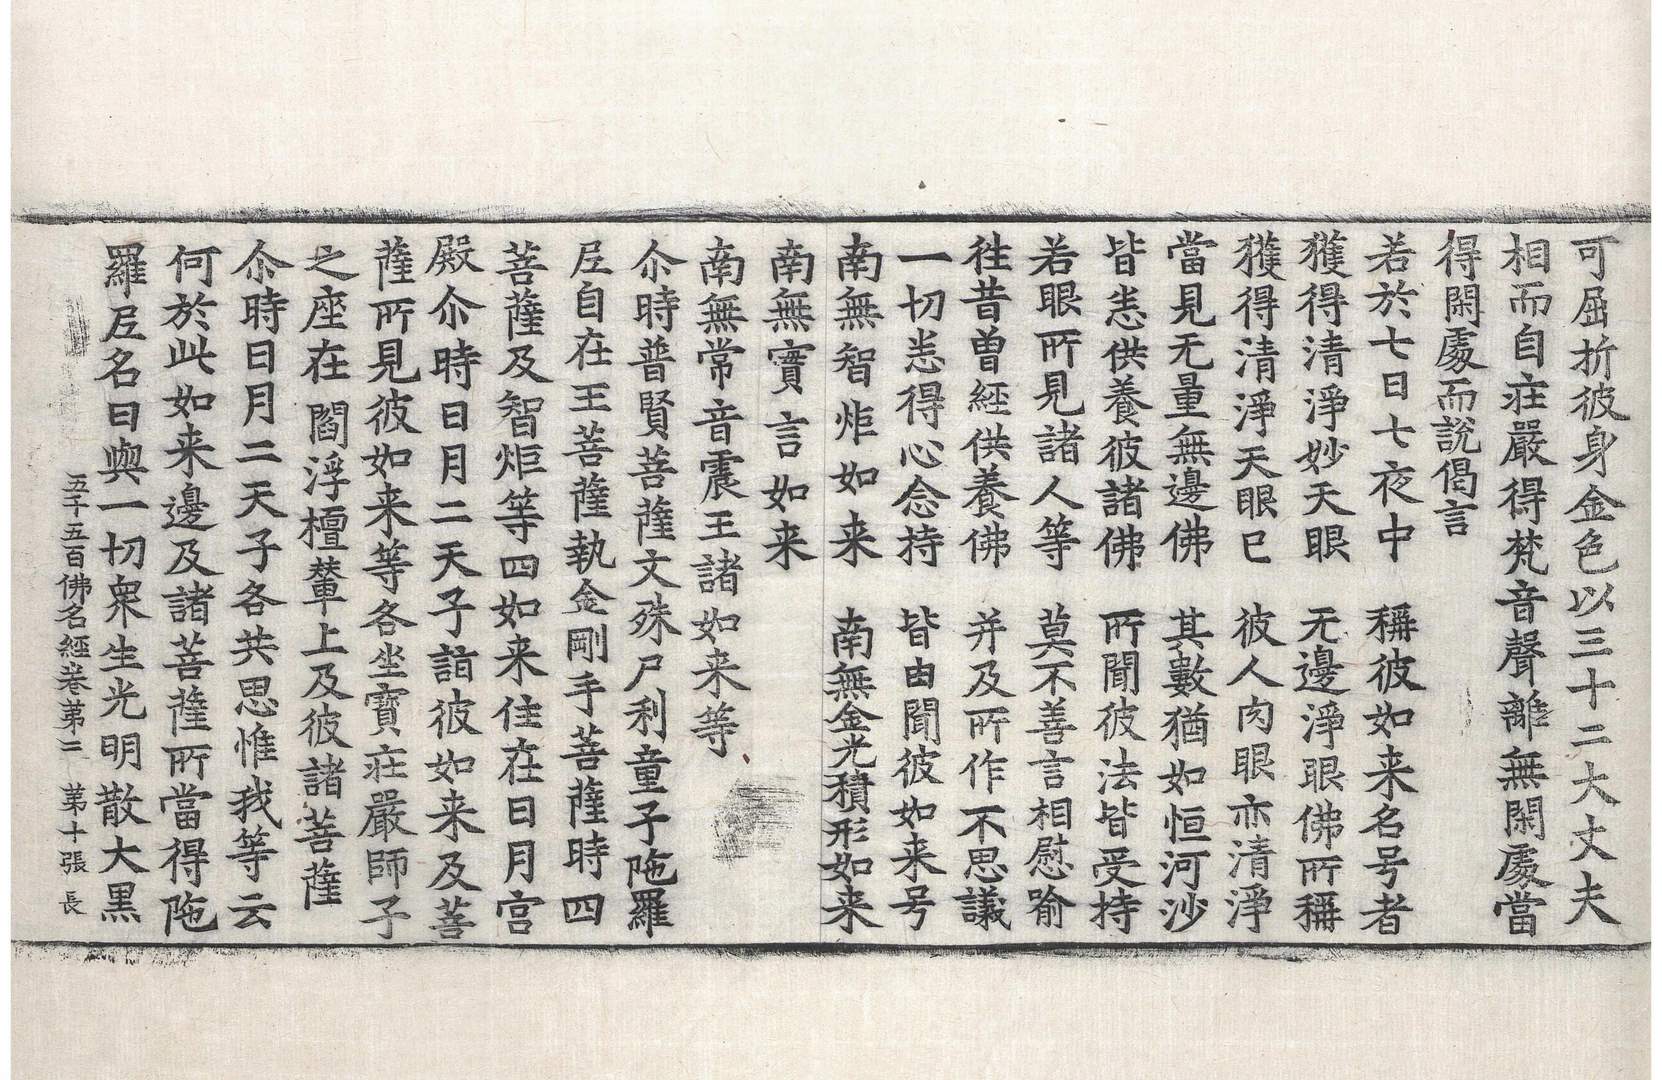 可屈折彼身金色以三十二大丈夫
相而自莊嚴得梵音聲離無閑處當
得閑處而說偈言
若於七日七夜中　稱彼如来名号者
獲得清淨妙天眼　无邊淨眼佛所稱
獲得清淨天眼已　彼人肉眼亦清淨
當見无量無邊佛　其數猶如恒河沙
皆悉供養彼諸佛　所聞彼法皆受持
若眼所見諸人等　莫不善言相慰喻
往昔曾經供養佛　并及所作不思議
一切悉得心念持　皆由聞彼如来号
南無智炬如来　南無金光積形如来
南無實言如来
南無常音震王諸如来等
尒時普賢菩薩文殊尸利童子陁羅
尼自在王菩薩執金剛手菩薩時四
菩薩及智炬等四如来住在日月宮
殿尒時日月二天子詣彼如来及菩
薩所見彼如来等各坐寶莊嚴師子
之座在閻浮檀輦上及彼諸菩薩
尒時日月二天子各共思惟我等云
何於此如来邊及諸菩薩所當得陁
羅尼名曰與一切衆生光明散大黑
五千五百佛名經卷第二　第十張　長